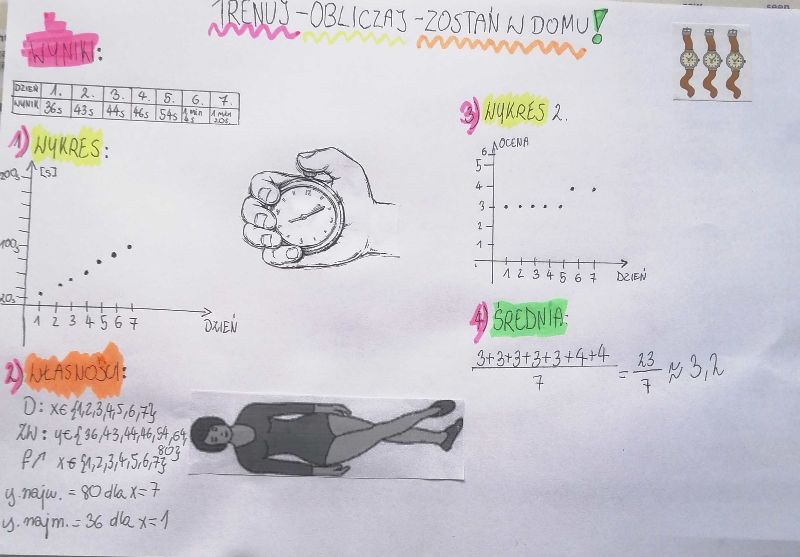 TRENUJ-OBLICZAJ-ZOSTAŃ W DOMU!
WYNIKI:
DZIEŃ 1. 2. 3. 4. 5. 6. 7.
WYNIK 36s 43s 44s 46s 54s 1 min 4s 1 min 20s
1) WYKRES:
[s]
200s
100s
20s
1 2 3 4 5 6 7
DZIEŃ
2) WŁASNOŚCI:
D: x∈{1,2,3,4,5,6,7}
ZW: y∈{36,43,44,46,54,64,
80}
f↗ x∈{1,2,3,4,5,6,7}
y. najw. = 80 dla x=7
y. najm. = 36 dla x=1
3) WYKRES 2.
OCENA
6
5
4
3
2
1
1 2 3 4 5 6 7
DZIEŃ
4) ŚREDNIA:
3+3+3+3+3+4+4
7
= 23/7 ≈ 3,2